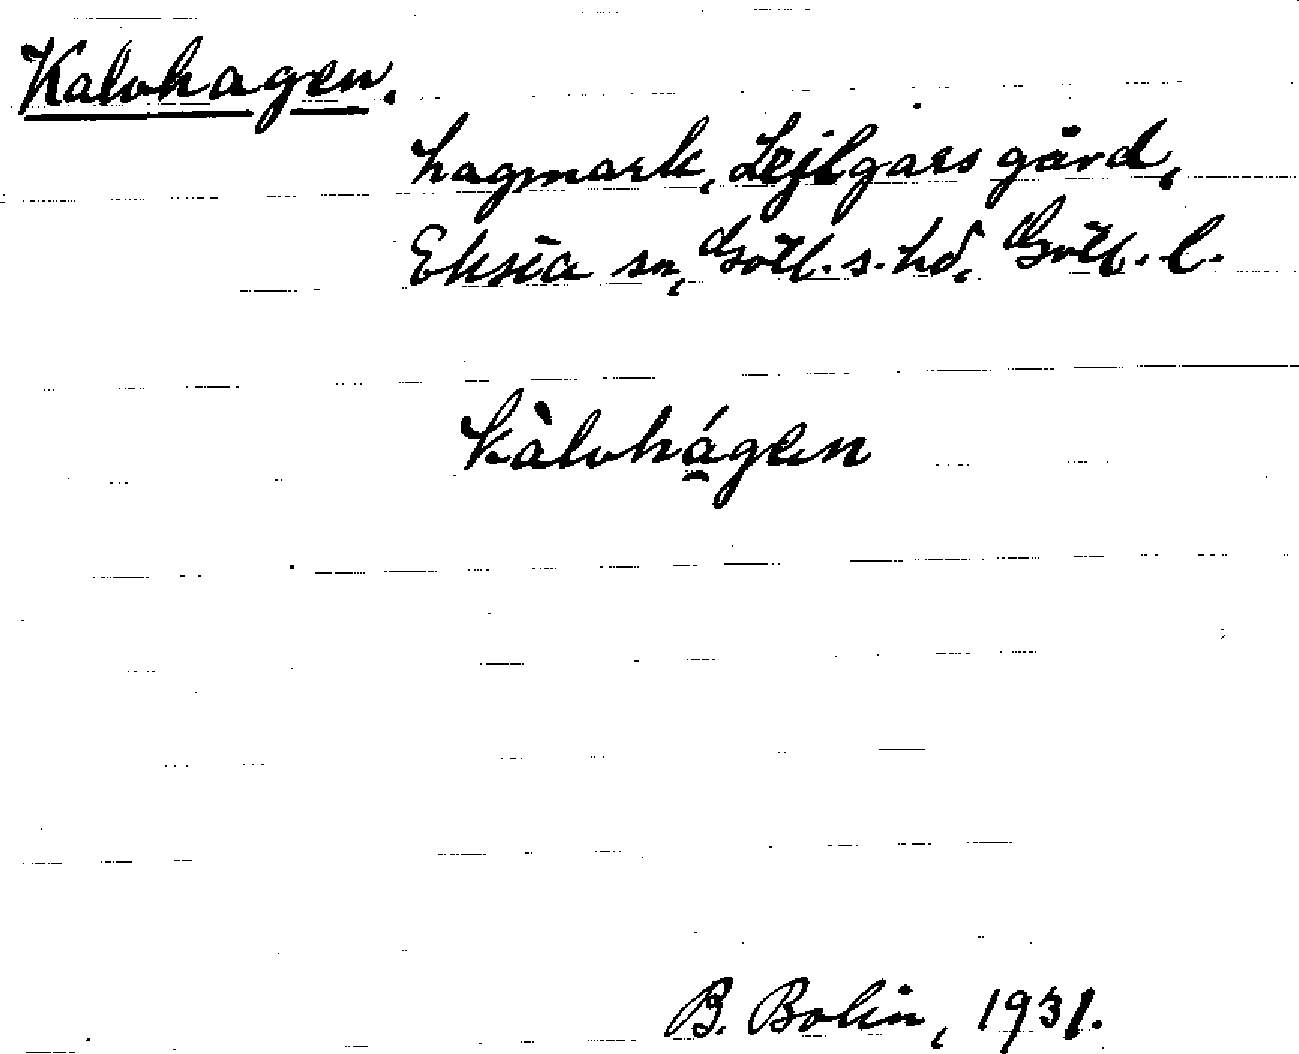 Kalvhagen.
hagmark, Lejlgars gård,
Eksta sn, Gotl. s. hd, Gotl. l.
kàlvhá̱gen
B. Bolin, 1931.